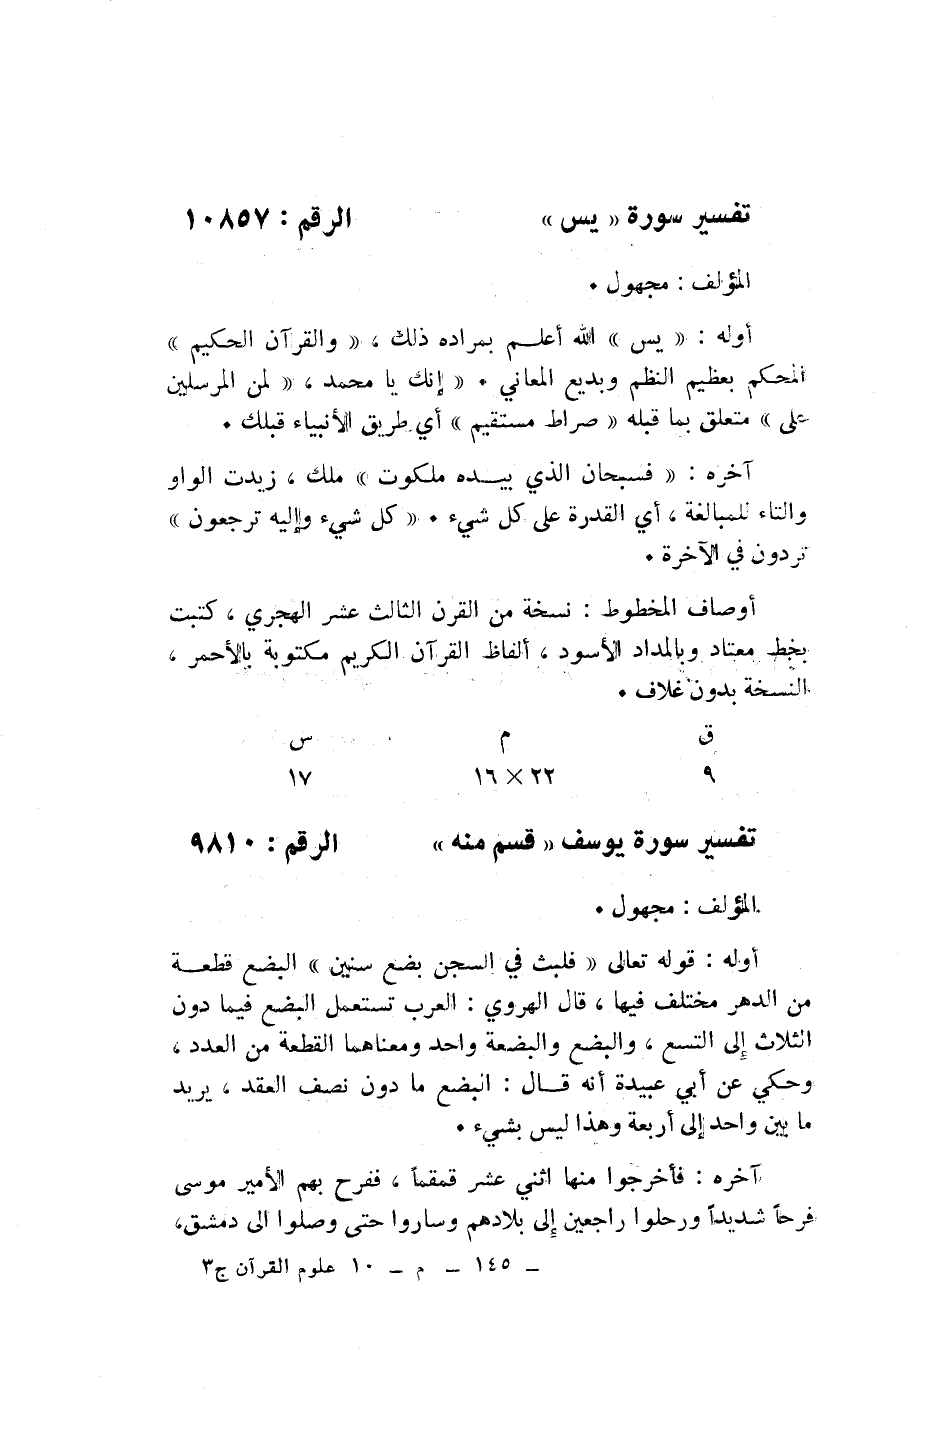 تفسير سورة « يس » الرقم : ١٠٨٥٧
المؤلف : مجهول ٠
أوله : « يس » الله أعلم بمراده ذلك ، « والقرآن الحكيم »
المحكم بعظيم النظم وبديع المعاني ٠ « إنك يا محمد ، « لمن المرسلين
على » متعلق بما قبله « صراط مستقيم » أي طريق الأنبياء قبلك ٠
آخره : « فسبحان الذي بيده ملكوت » ملك ، زيدت الواو
والتاء للمبالغة ، أي القدرة على كل شيء ٠ « كل شيء وإليه ترجعون »
تردون في الآخرة ٠
أوصاف المخطوط : نسخة من القرن الثالث عشر الهجري ، كتبت
بخط معتاد وبالمداد الأسود ، ألفاظ القرآن الكريم مكتوبة بالأحمر ،
النسخة بدون غلاف ٠
ق م س
٩ ٢٢ × ١٦ ١٧
تفسير سورة يوسف « قسم منه » الرقم : ٩٨١٠
المؤلف : مجهول ٠
أوله : قوله تعالى « فلبث في السجن بضع سنين » البضع قطعة
من الدهر مختلف فيها ، قال الهروي : العرب تستعمل البضع فيما دون
الثلاث إلى التسع ، والبضع والبضعة واحد ومعناهما القطعة من العدد ،
وحكي عن أبي عبيدة أنه قال : البضع ما دون نصف العقد ، يريد
ما بين واحد إلى أربعة وهذا ليس بشيء ٠
آخره : فأخرجوا منها اثني عشر قمقماً ، ففرح بهم الأمير موسى
فرحاً شديداً ورحلوا راجعين إلى بلادهم وساروا حتى وصلوا الى دمشق،
ــ ١٤٥ ــ م ــ ١٠ علوم القرآن ج٣